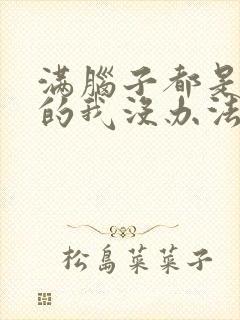 滿腦子都是
的我沒办法
松島菜菜子